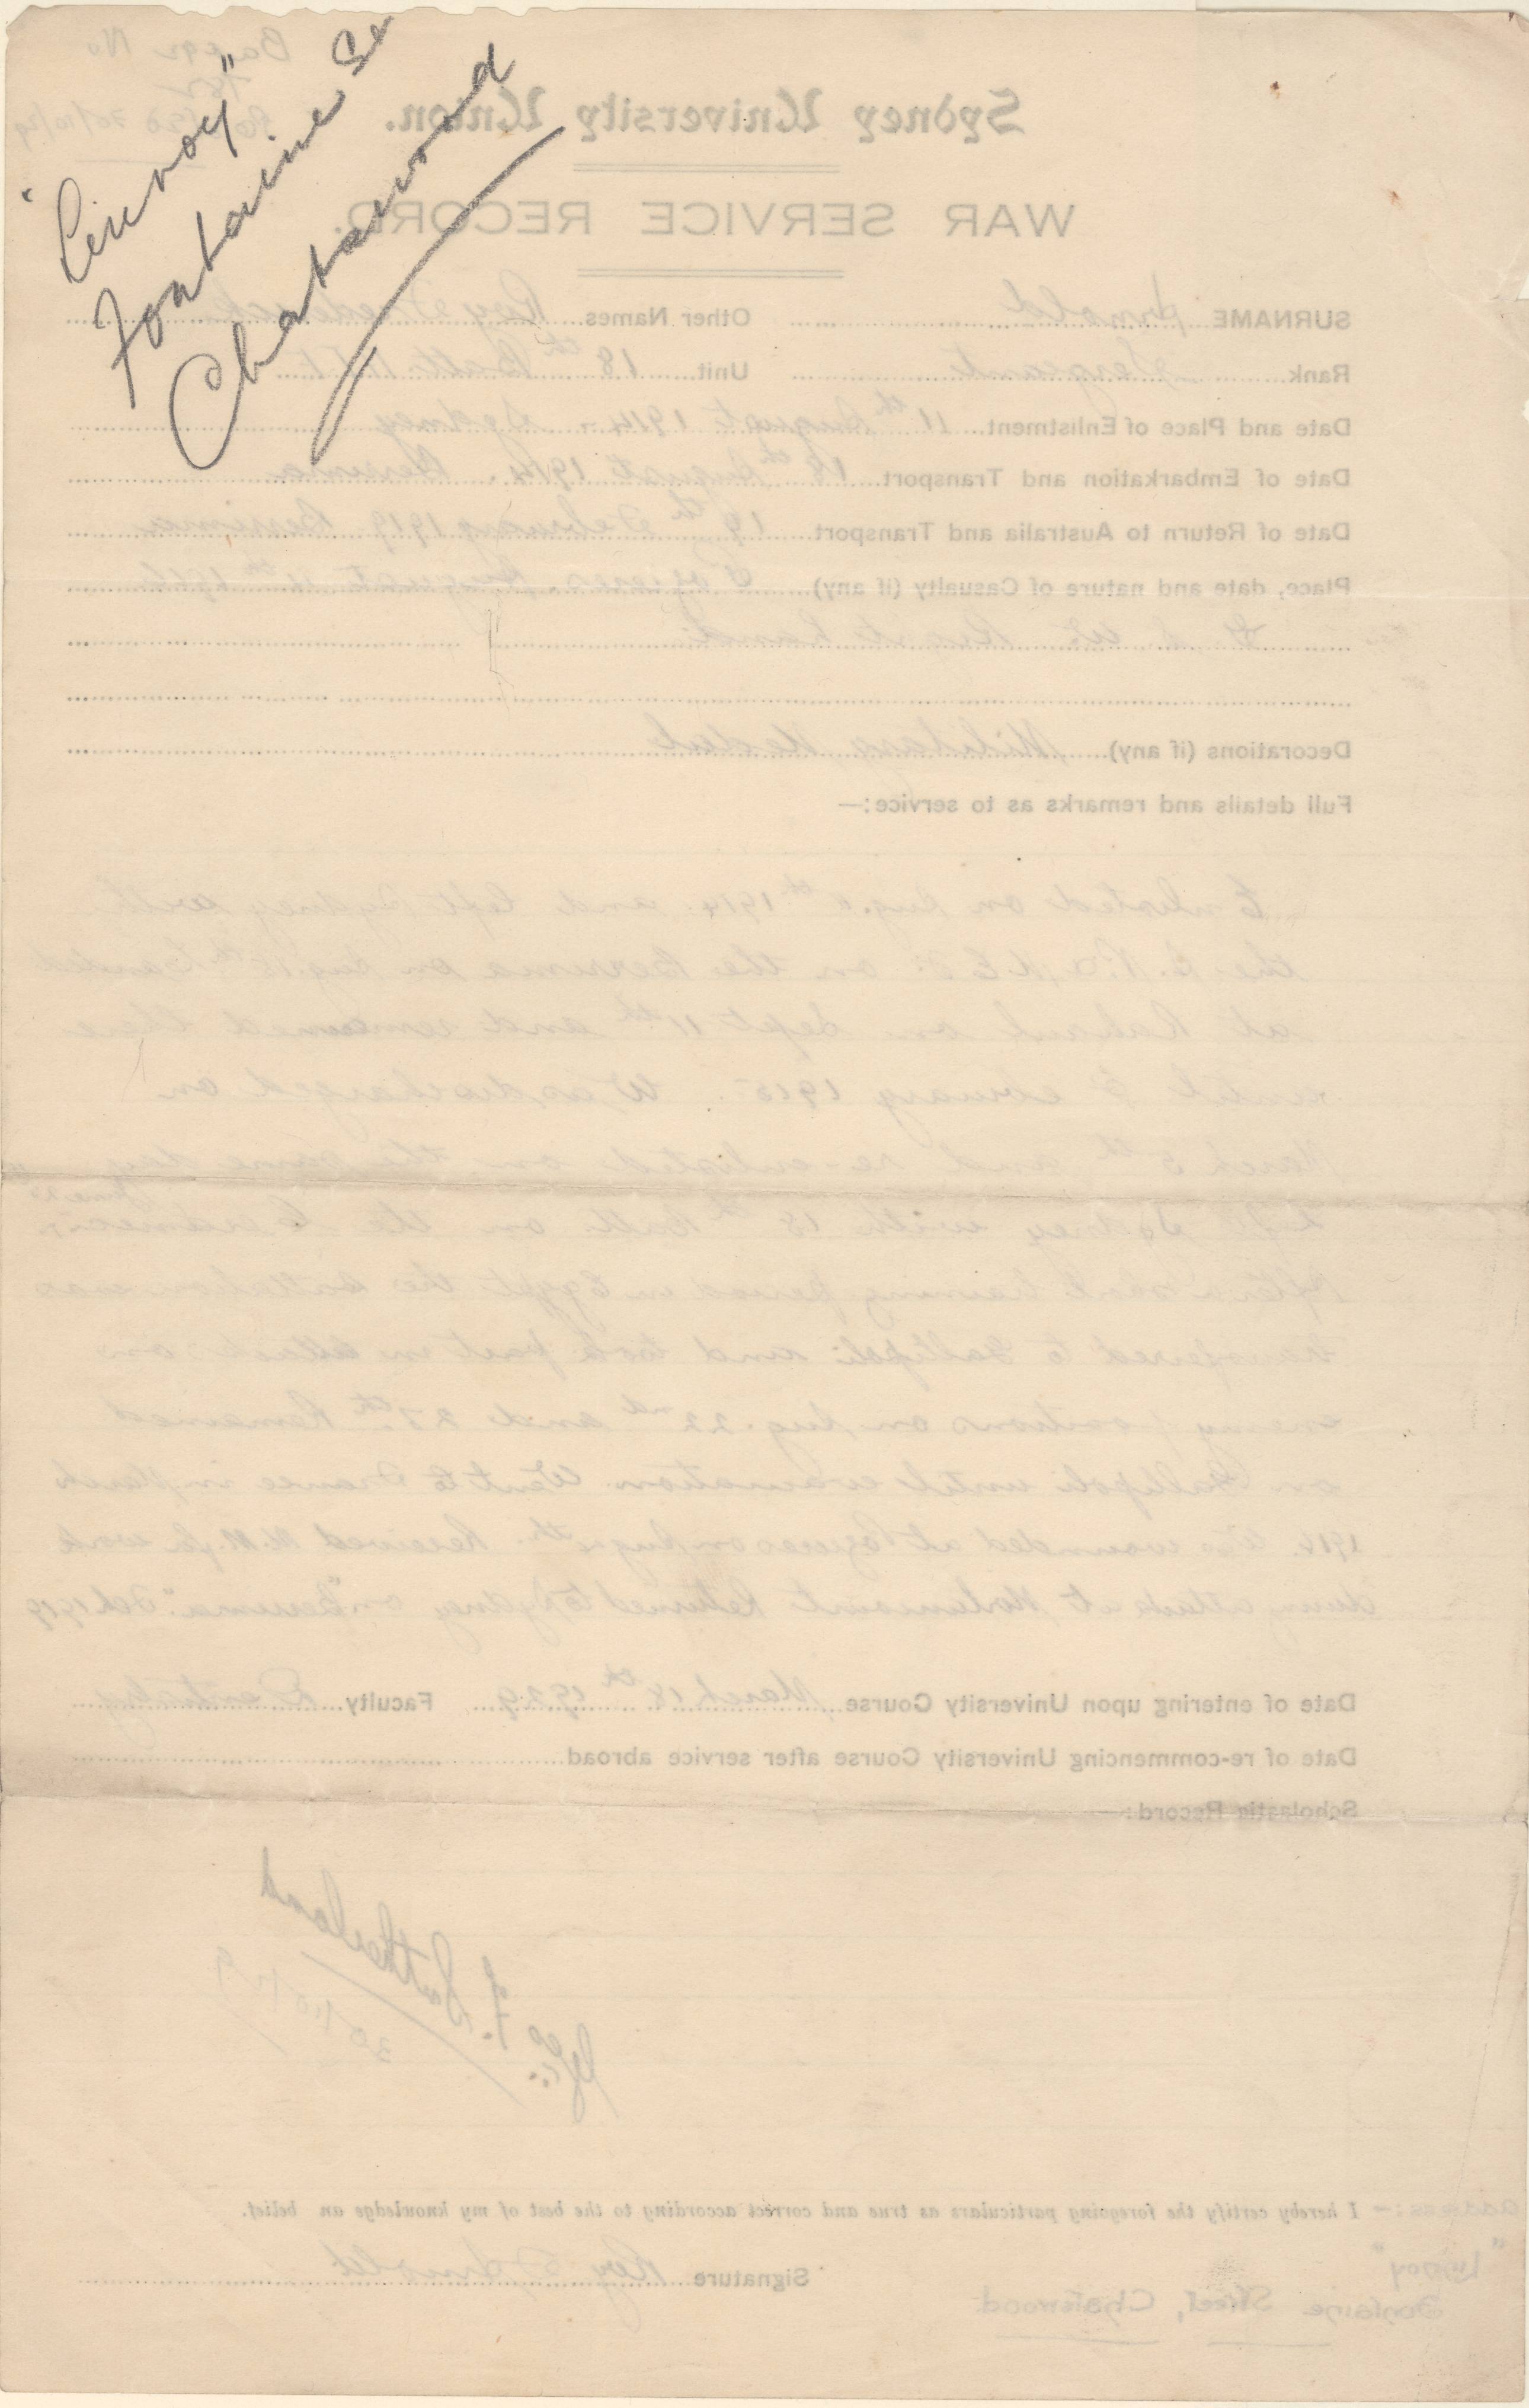 "Linroy"
Fontaine St
Chatswood
Sydney University Union.
WAR SERVICE RECORD.
SURNAME Arnold Other Names Roy Frederick
Rank Sergeant Unit 18th Battn A.I.F.
Date and Place of Enlistment 11th August 1914 - Sydney
Date of Embarkation and Transport 18th August 1914. Berrima
Date of Return to Australia and Transport 19th February 1919 Berrima
Place, date and nature of Casualty (if any) Pozieres. August 4th 1916
G. S. W. Right hand
Decorations (if any) Military Medal
Full details and remarks as to service:—
Enlisted on Aug. 11th 1914 and left Sydney with
the A.N. & M.E.F. on the Berrima on Aug. 18th Landed
at Rabaul on Sept 11th and remained there
until February 1915. Was discharged on
March 5th and re-enlisted on the same day
Left Sydney with 18th Battn on the Ceramic
After a short training period in Egypt the battalion was
transferred to Gallipoli and took part in attacks on
enemy positions on Aug. 22nd and 27th Remained
on Gallipoli until evacuation. Went to France in March
1916. Was wounded at Pozieres on Aug 4th. Received M.M. for work
during attack at Morlancourt Returned to Sydney on "Berrima" Feb 1919
Date of entering upon University Course March 18th Faculty Dentistry
Date of re-commencing University Course after service abroad
Scholastic Record:—
I hereby certify the foregoing particulars as true and correct according to the best of my knowledge an belief.
Address:—
Signature Roy F Arnold
"Linroy"
Fontaine Street, Chatswood